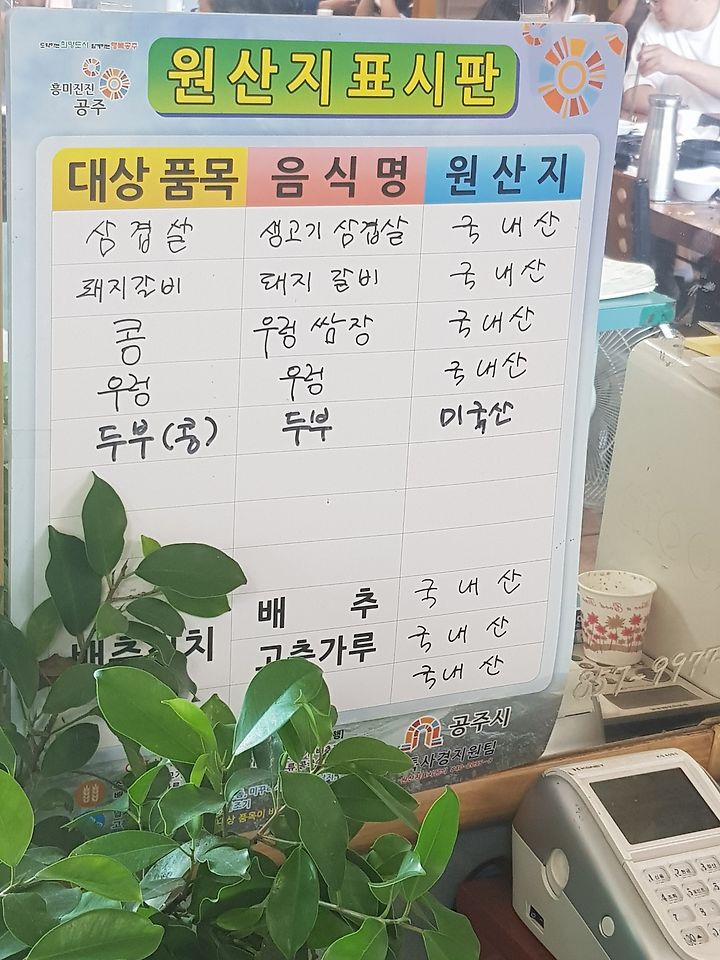 흥미진진
공주
원산지표시판
대상 품목 음식명 원산지
삼겹살 생고기 삼겹살 국내산
돼지갈비 돼지 갈비 국내산
콩 우렁 쌈장 국내산
우렁 우렁 국내산
두부(콩) 두부 미국산
배추 국내산
배추 치 고춧가루 국내산
국내산
공주시
857-9977